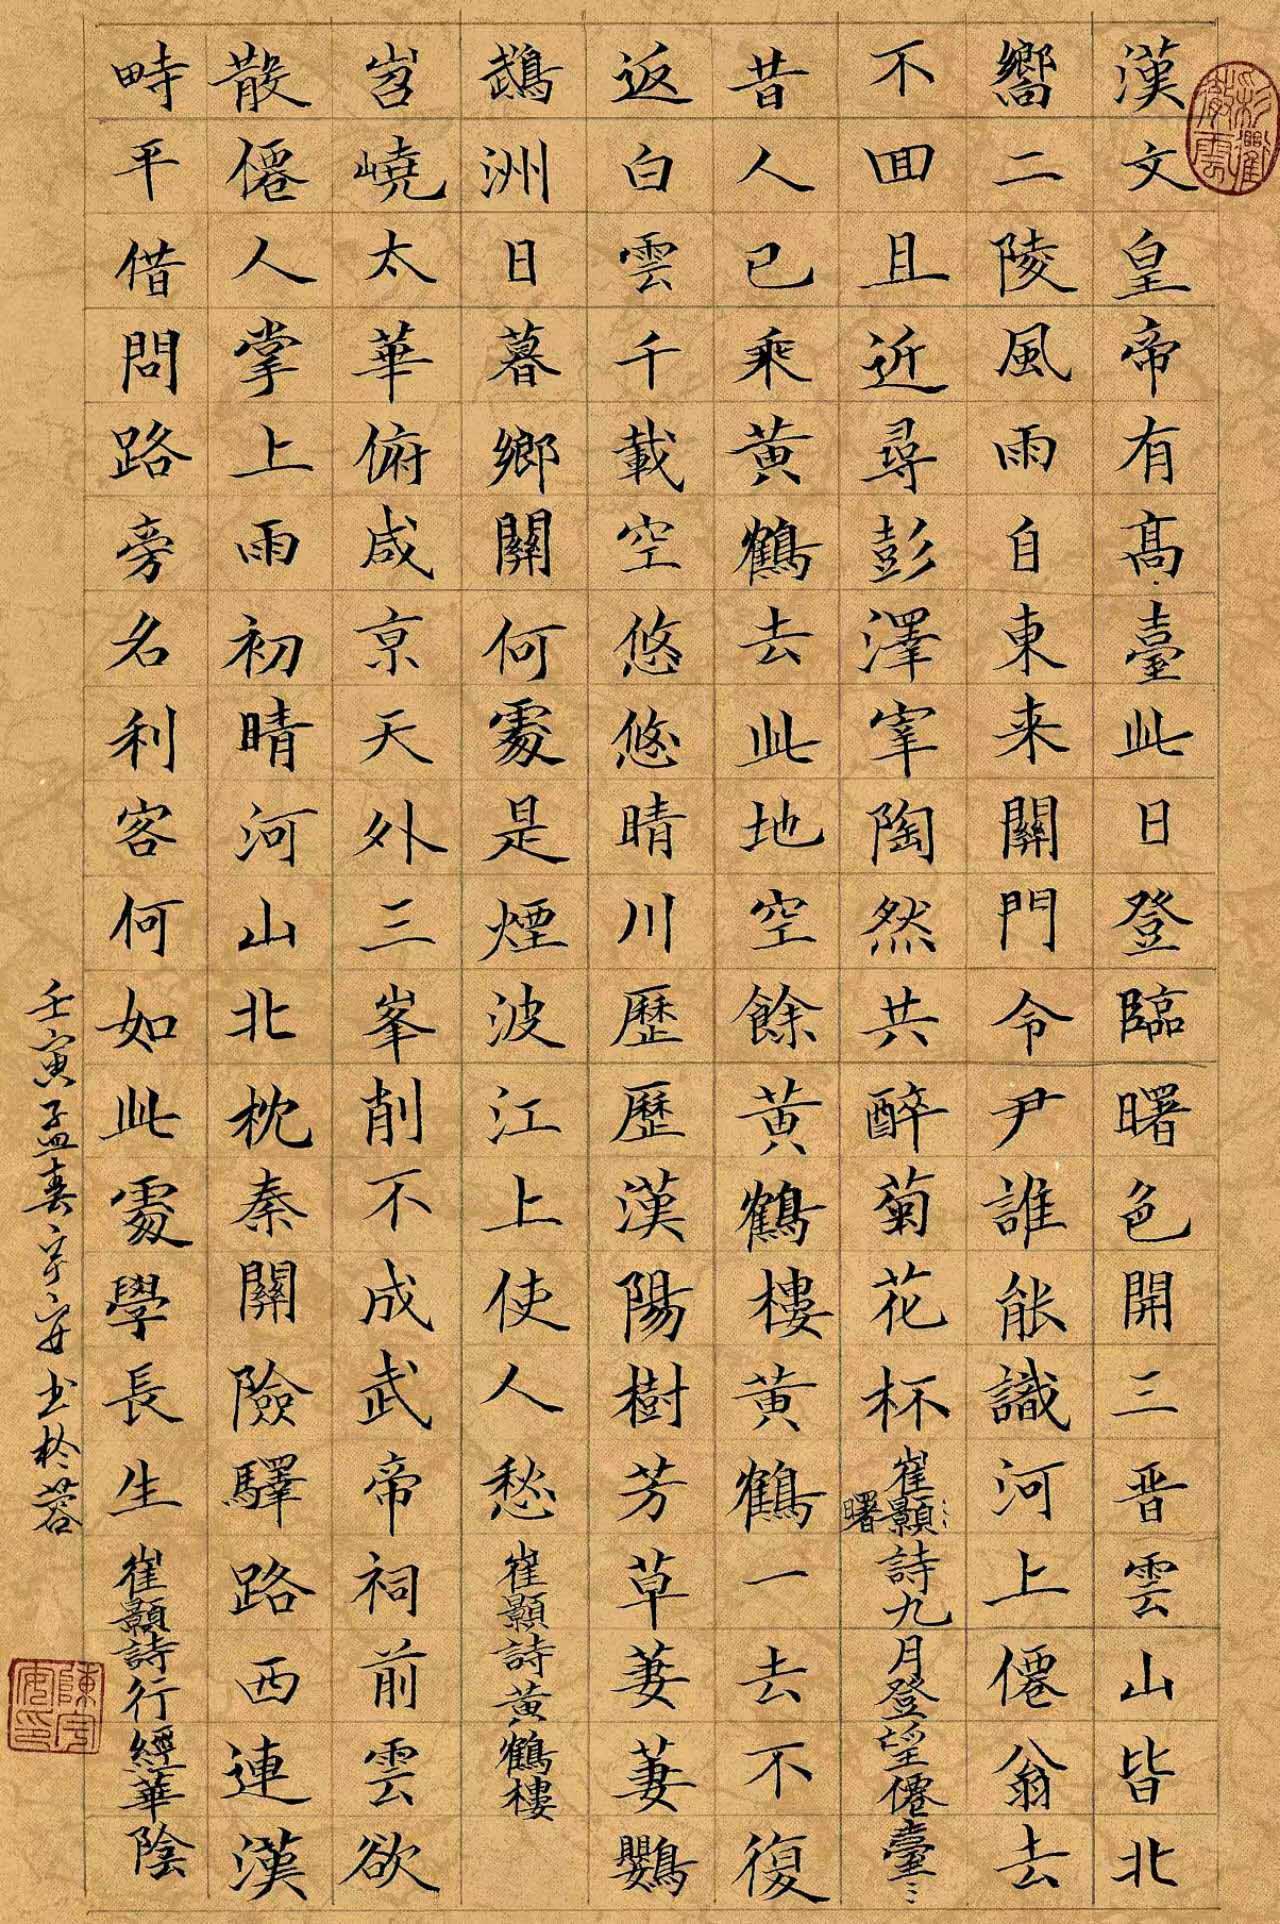 漢文皇帝有高臺此日登臨曙色開三晋雲山皆北
嚮二陵風雨自東来關門令尹誰能識河上僊翁去
不回且近尋彭澤宰陶然共醉菊花杯崔顥詩九月登望僊臺
曙
昔人已乘黄鶴去此地空餘黄鶴樓黄鶴一去不復
返白雲千載空悠悠晴川歷歷漢陽樹芳草萋萋鸚
鵡洲日暮鄉關何處是煙波江上使人愁崔顥詩黄鶴樓
岧嶢太華俯咸京天外三峯削不成武帝祠前雲欲
散僊人掌上雨初晴河山北枕秦關險驛路西連漢
畤平借問路旁名利客何如此處學長生崔顥詩行經華陰
壬寅孟春宇安书於蓉
陳宇安印